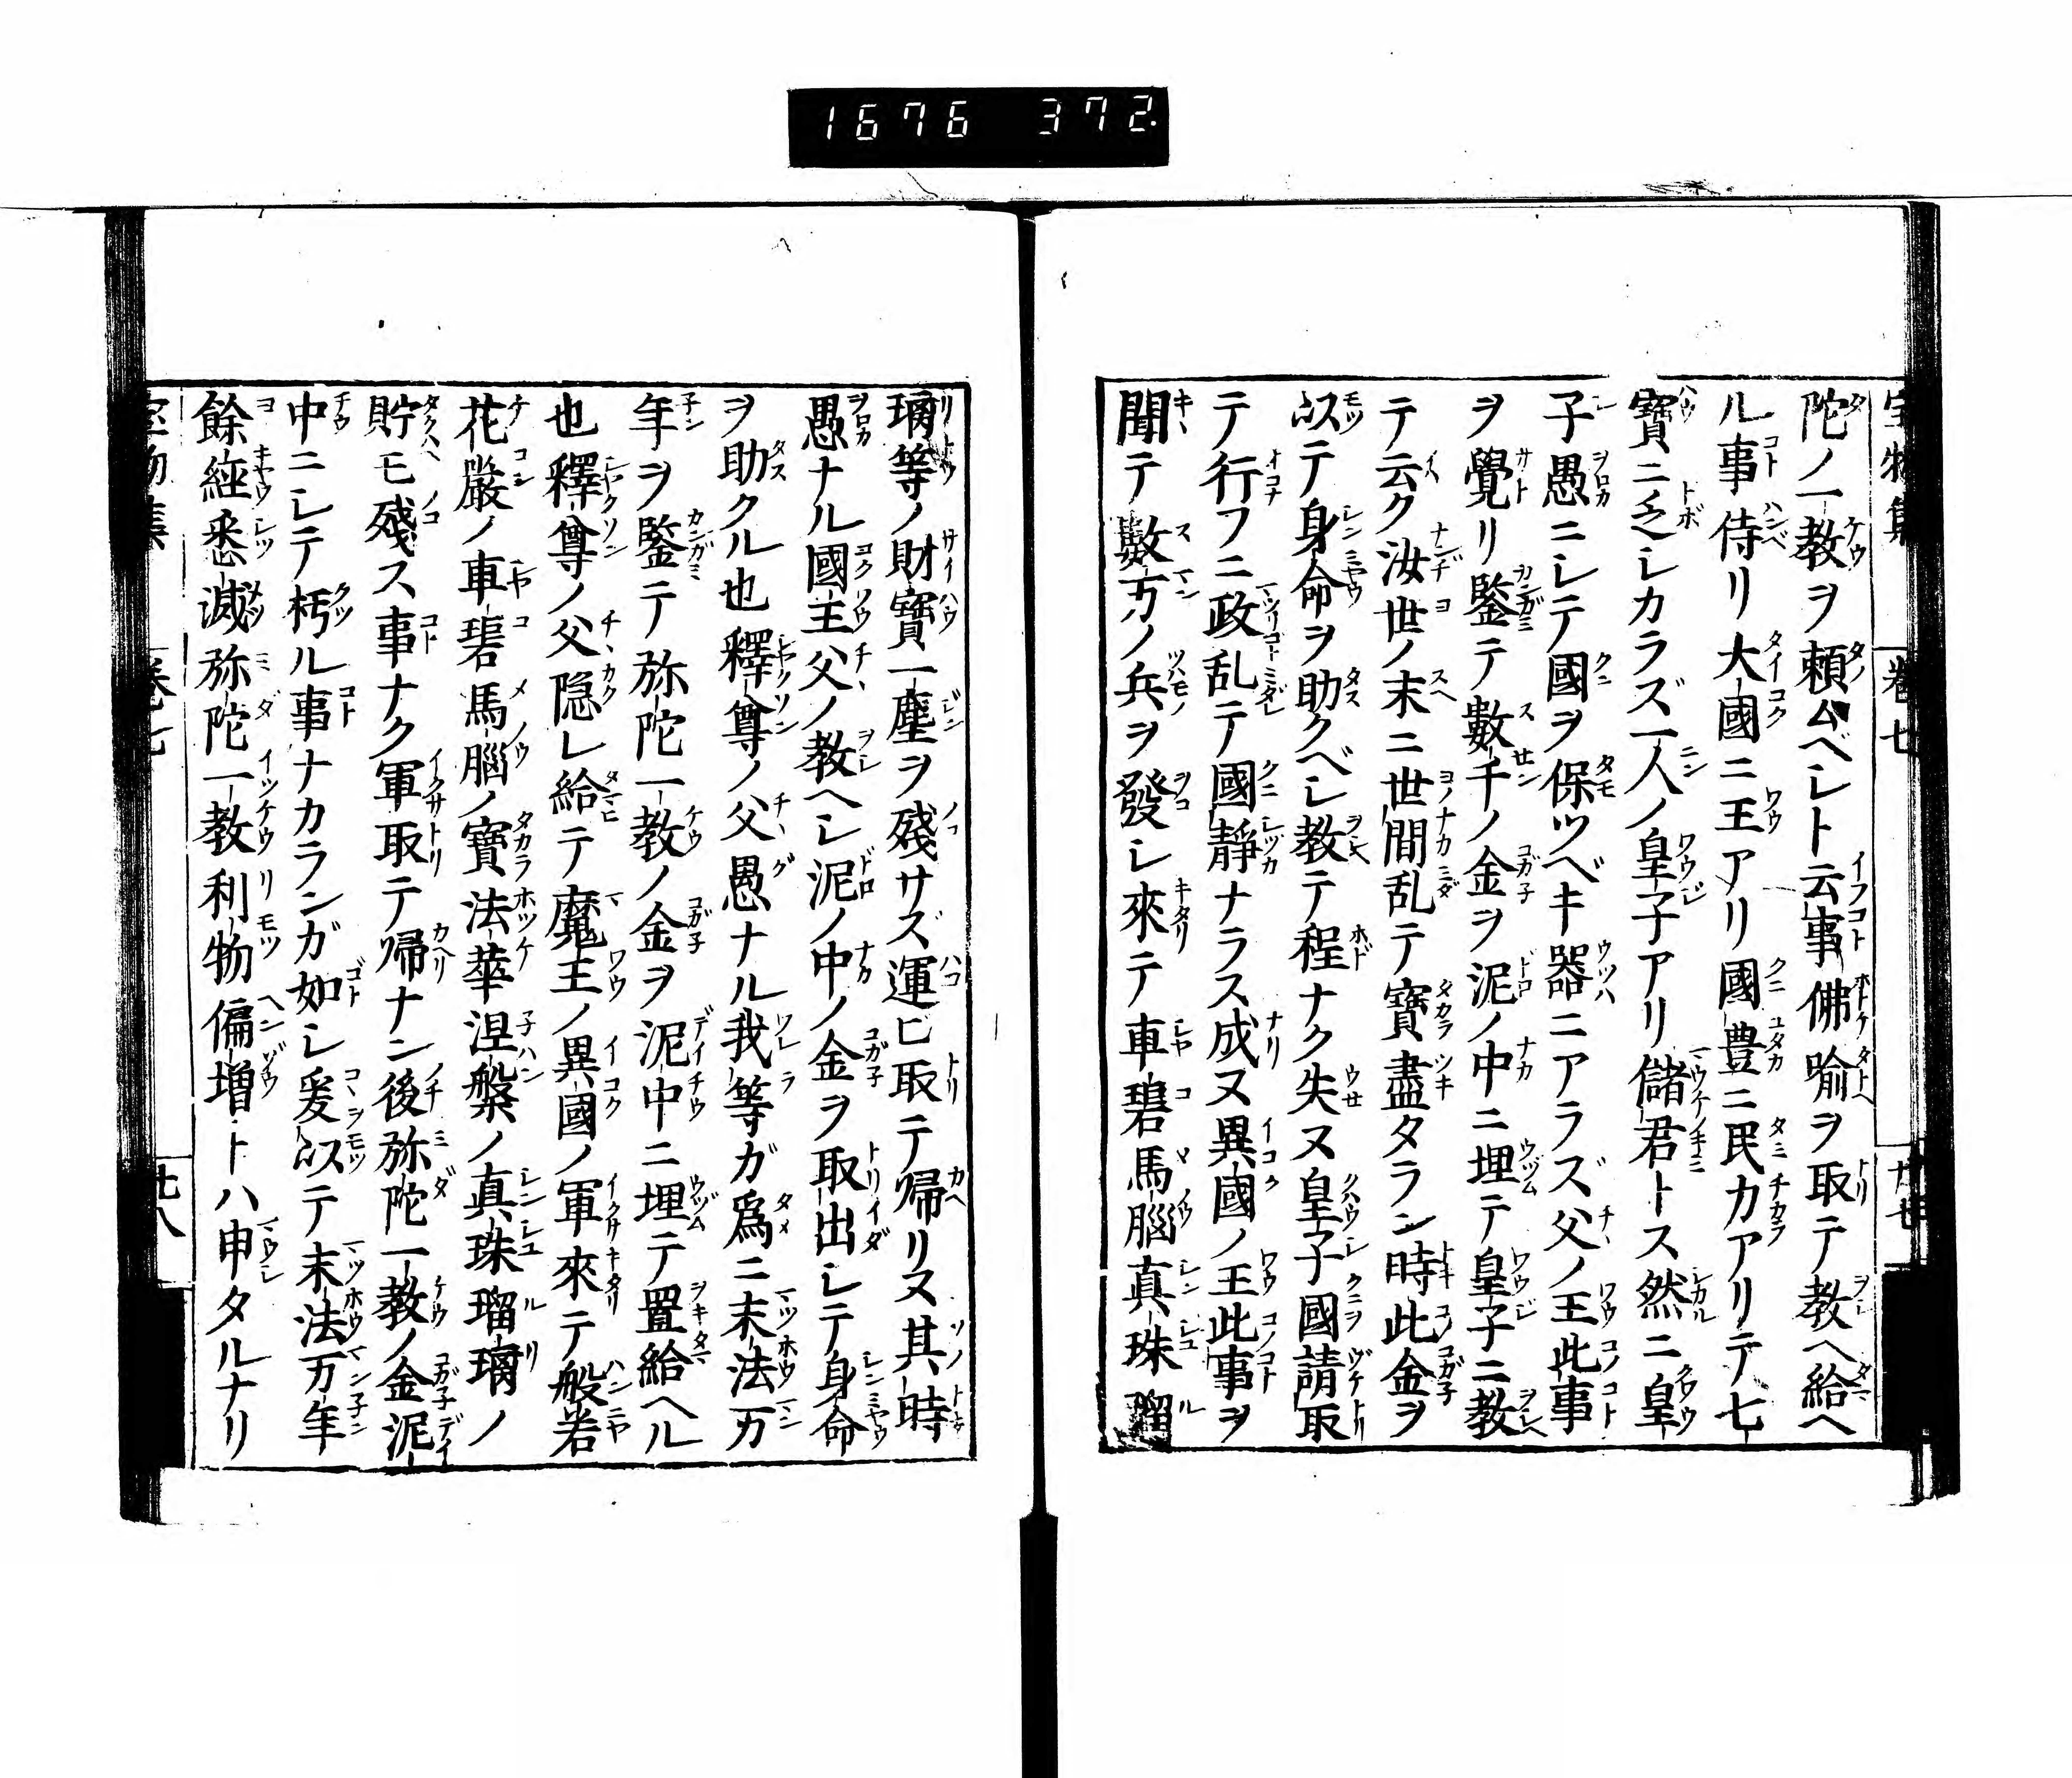 1676 372
陀ノ一教ヲ頼ムベシト云事佛喻ヲ取テ教ヘ給ヘ
ル事侍リ大國ニ王アリ國豊ニ民力アリテ七
寶ニ乏シカラズ一人ノ皇子アリ儲君トス然ニ皇
子愚ニシテ國ヲ保ツベキ器ニアラズ父ノ王此事
ヲ覺リ鑒テ數千ノ金ヲ泥ノ中ニ埋テ皇子ニ教
テ云ク汝世ノ末ニ世間乱テ寳盡タラン時此金ヲ
以テ身命ヲ助クベシ教テ程ナク失ヌ皇子國請取
テ行フニ政乱テ國静ナラス成ヌ異國ノ王此事ヲ
聞テ數万ノ兵ヲ發シ來テ車磲馬腦真珠瑠
璃等ノ財寶一塵ヲ殘サズ運ビ取テ帰リヌ其時
愚ナル國王父ノ教ヘシ泥ノ中ノ金ヲ取出シテ身命
ヲ助クル也釋尊ノ父愚ナル我等ガ爲ニ末法万
年ヲ鑒テ弥陀一教ノ金ヲ泥中ニ埋テ置給ヘル
也釋尊ノ父隠レ給テ魔王ノ異國ノ軍來テ般若
花嚴ノ車磲馬腦ノ寶法華涅槃ノ真珠瑠璃ノ
貯モ殘ス事ナク軍取テ帰ナン後弥陀一教ノ金泥
中ニシテ朽ル事ナカランガ如シ爰以テ末法万年
餘經悉滅弥陀一教利物偏増トハ申タルナリ
卷七
廿八